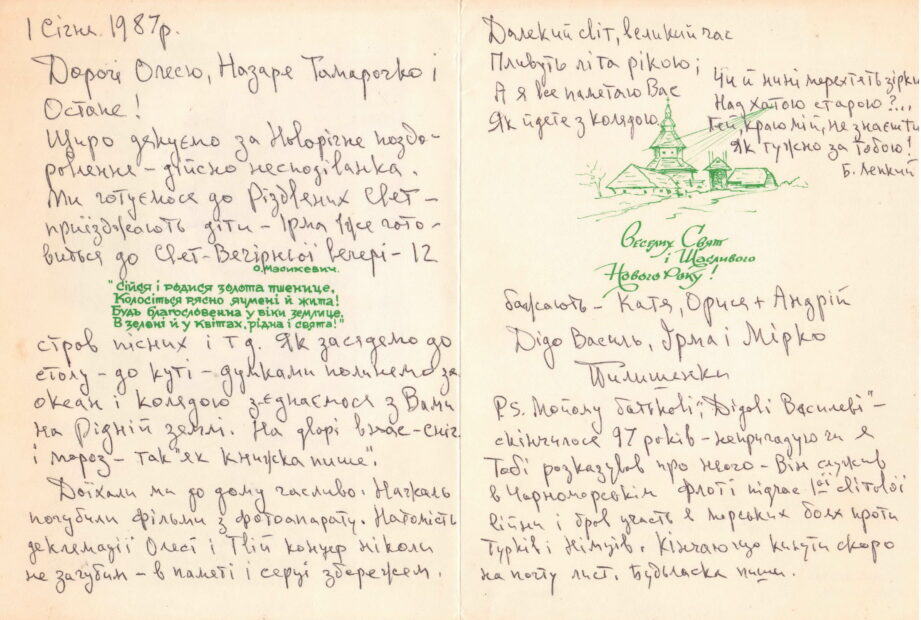 1 Січня 1987р.
Дорогі Олесю, Назаре Тамарочко і
Остапе!
Щиро дякуємо за Новорічне поздо-
ровлення – дійсно несподіванка.
Ми готуємося до Різдвяних Свят –
приїзджають діти – Ірма вже гото-
виться до Свят-Вечірньої вечері – 12
О.Масикевич.
"Сійся і родися золота пшенице,
Колосіться рясно ячмені й жита!
Будь благословенна у віки землице,
В зелені й у квітах, рідна і свята!"
стров пісних і т д. Як засядемо до
столу – до куті – думками полинемо за
океан і колядою з'єднаємося з Вами
на Рідній землі. На дворі в нас – сніг
і мороз – так "як книжка пише".
Доїхали ми до дому щасливо. Нажаль
погубили фільми з фотоапарату. Натомість
деклемації Олесі і Твій концер ніколи
не загубим – в памяті і серці збережем.
Далекий світ, великий час
Пливуть літа рікою;
А я все памятаю Вас
Як йдете з колядою
Чи й нині мерехтять зірки
Над хатою старою?...
Гей, краю мій, не знаєш ти
Як тужно за тобою!
Б. Лепкий
Веселих Свят
і Щасливого
Нового Року!
бажають – Катя, Орися + Андрій
Дідо Василь, Ірма і Мірко
Пилишенки
P.S. Мойому батькові, "Дідові Василеві" –
скінчилося 97 років – непригадую чи я
Тобі розказував про нього – Він служив
в Чорноморськім флоті підчас 1ої світової
війни і брав участь в морських боях проти
Турків і Німців. Кінчаю що кинути скоро
на пошту лист. Будьласка пиши.